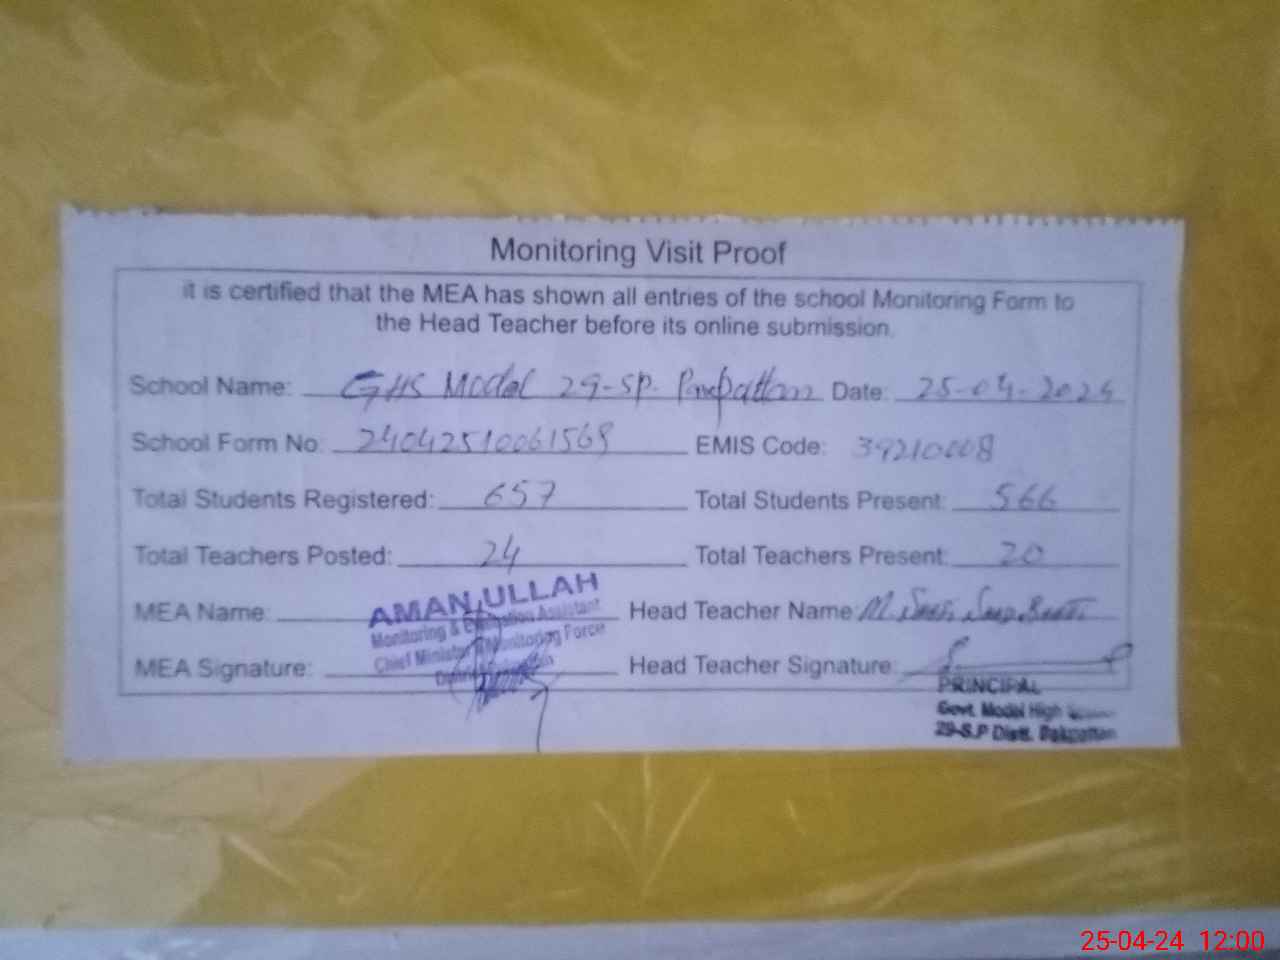 Monitoring Visit Proof
it is certified that the MEA has shown all entries of the school Monitoring Form to
the Head Teacher before its online submission.
School Name: GHS Model 29-SP. Pakpattan Date: 25-04-2024
School Form No: 24042510061569 EMIS Code: 39210008
Total Students Registered: 657 Total Students Present: 566
Total Teachers Posted: 24 Total Teachers Present: 20
MEA Name: AMAN ULLAH Head Teacher Name: M.
Monitoring & Evaluation Assistant
Chief Minister's Monitoring Force
MEA Signature: Head Teacher Signature:
PRINCIPAL
Govt. Model High
29-S.P Distt. Pakpattan
25-04-24 12:00